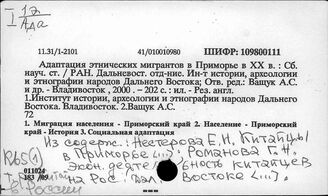 I 12
Ада
11.31/1-2101 41/010010980 ШИФР: 109800111
Адаптация этнических мигрантов в Приморье в XX в. : Сб.
науч. ст. / РАН. Дальневост. отд-ние. Ин-т истории, археологии
и этнографии народов Дальнего Востока; Отв. ред.: Ващук А.С
и др. - Владивосток , 2000. – 202 с. : ил. - Рез. англ.
1.Институт истории, археологии и этнографии народов Дальнего
Востока. Владивосток. 2.Ващук А.С.
72
1. Миграция населения - Приморский край 2. Население - Приморский
край - История 3. Социальная адаптация
Из содерж.: Нестерова Е.И. Китайцы
в Приморье (...); Романова Г.Н.
Экон. деятельность китайцев
на Рос. Дал. Востоке (...).
011024
183 /09
в России